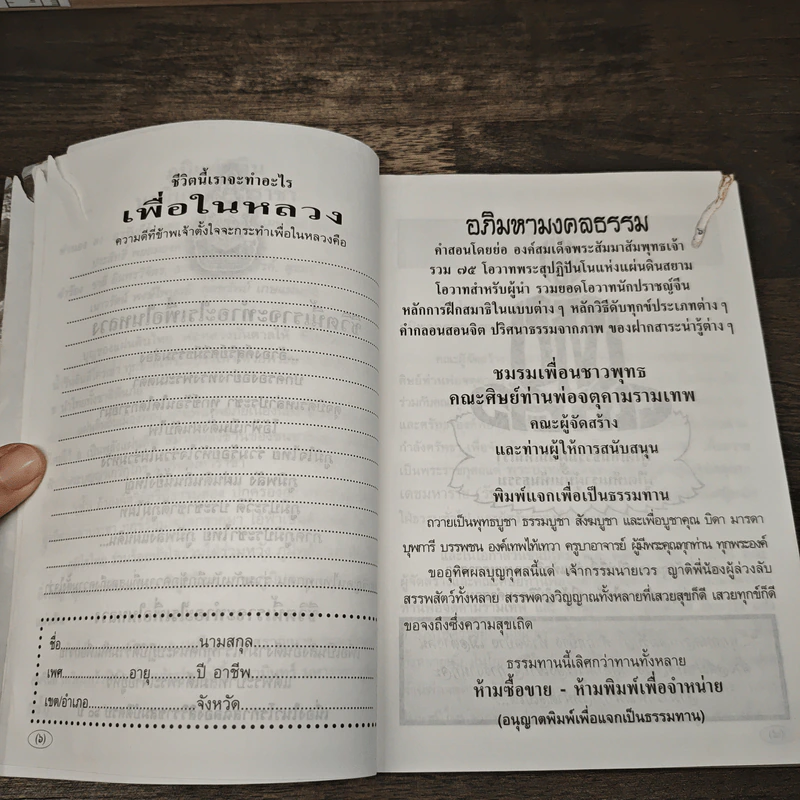 ชีวิตนี้เราจะทำอะไร
เพื่อในหลวง
ความดีที่ข้าพเจ้าตั้งใจจะกระทำเพื่อในหลวงคือ
ชื่อ นามสกุล
เพศ อายุ ปี อาชีพ
เขต/อำเภอ จังหวัด
(๖)
อภิมหามงคลธรรม
คำสอนโดยย่อ องค์สมเด็จพระสัมมาสัมพุทธเจ้า
รวม ๗๕ โอวาทพระสุปฏิปันโนแห่งแผ่นดินสยาม
โอวาทสำหรับผู้นำ รวมยอดโอวาทนักปราชญ์จีน
หลักการฝึกสมาธิในแบบต่าง ๆ หลักวิธีดับทุกข์ประเภทต่าง ๆ
คำกลอนสอนจิต ปริศนาธรรมจากภาพ ของฝากสาระน่ารู้ต่าง ๆ
ชมรมเพื่อนชาวพุทธ
คณะศิษย์ท่านพ่อจตุคามรามเทพ
คณะผู้จัดสร้าง
และท่านผู้ให้การสนับสนุน
พิมพ์แจกเพื่อเป็นธรรมทาน
ถวายเป็นพุทธบูชา ธรรมบูชา สังฆบูชา และเพื่อบูชาคุณ บิดา มารดา
บุพการี บรรพชน องค์เทพไท้เทวา ครูบาอาจารย์ ผู้มีพระคุณทุกท่าน ทุกพระองค์
ขออุทิศผลบุญกุศลนี้แด่ เจ้ากรรมนายเวร ญาติพี่น้องผู้ล่วงลับ
สรรพสัตว์ทั้งหลาย สรรพดวงวิญญาณทั้งหลายที่เสวยสุขก็ดี เสวยทุกข์ก็ดี
ขอจงถึงซึ่งความสุขเถิด
ธรรมทานนี้เลิศกว่าทานทั้งหลาย
ห้ามซื้อขาย - ห้ามพิมพ์เพื่อจำหน่าย
(อนุญาตพิมพ์เพื่อแจกเป็นธรรมทาน)